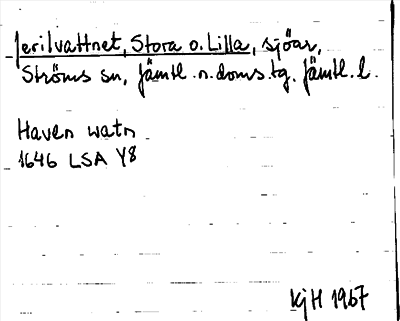 Jerilvattnet, Stora o. Lilla, sjöar,
Ströms sn, Jämtl. n. doms. tg. Jämtl. l.
Haven watn
1646 LSA Y8
KjH 1967